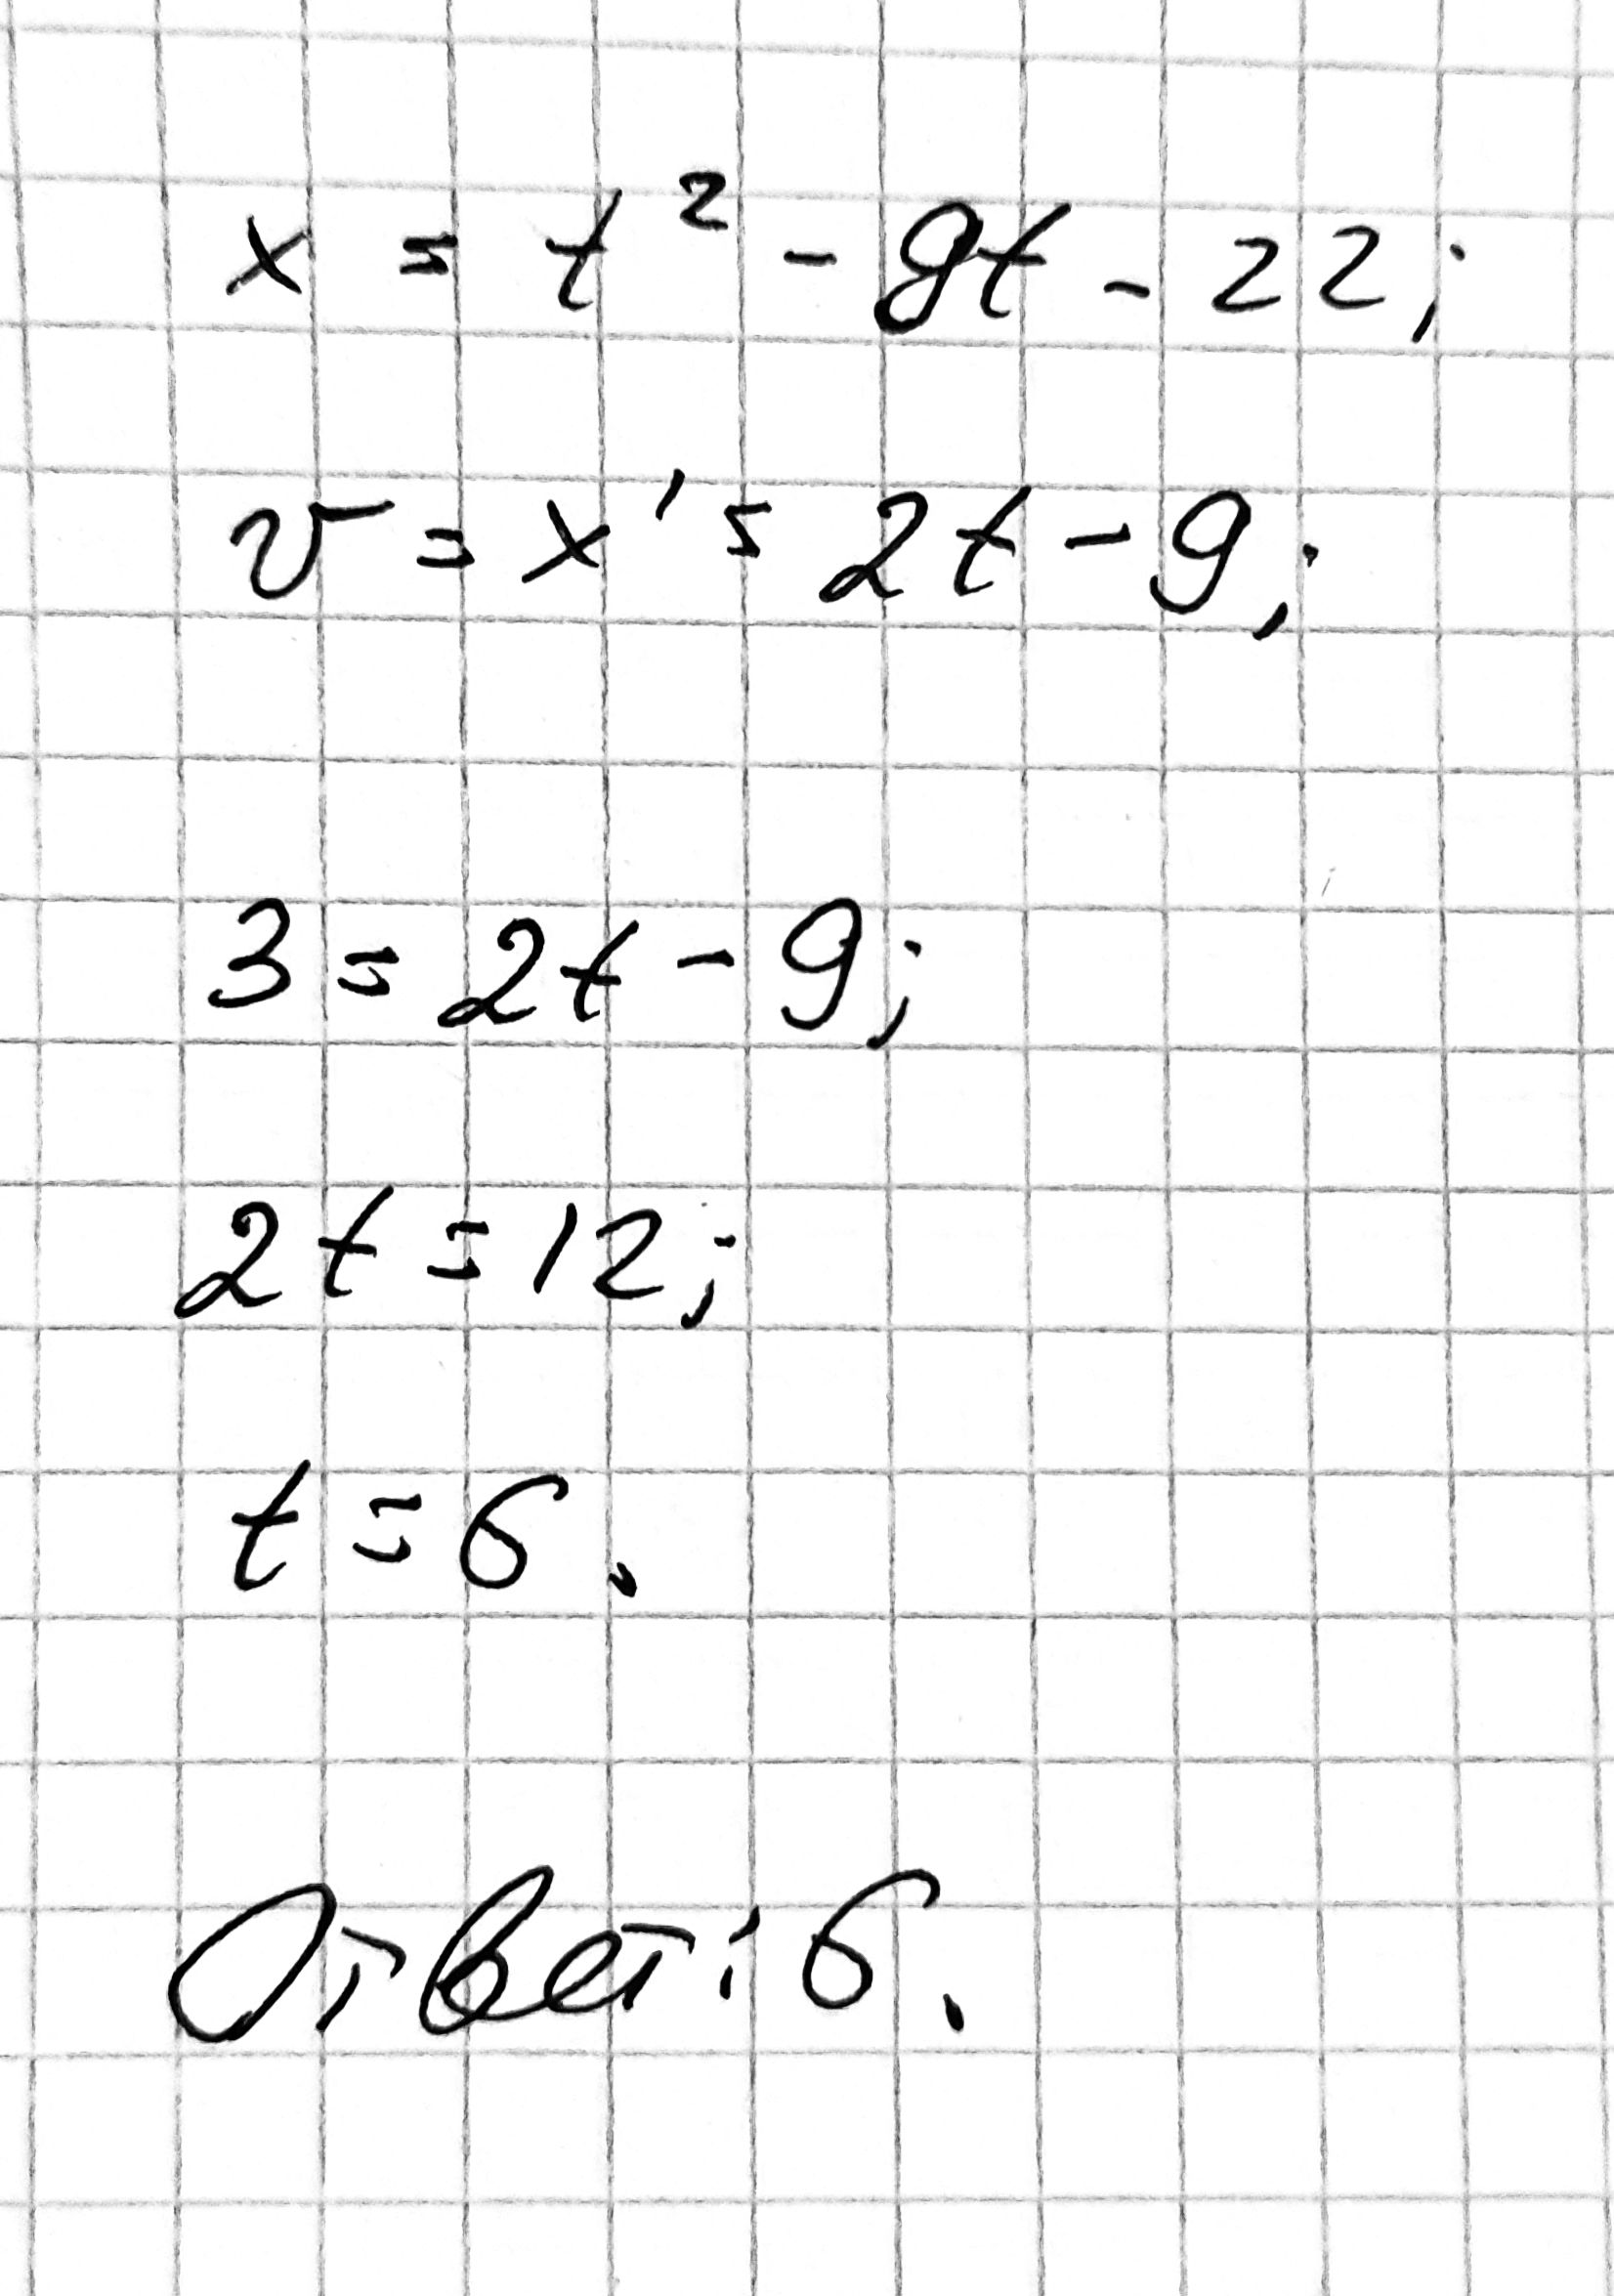 x = t² - 9t - 22;
v = x' = 2t - 9;
3 = 2t - 9;
2t = 12;
t = 6.
Ответ: 6.